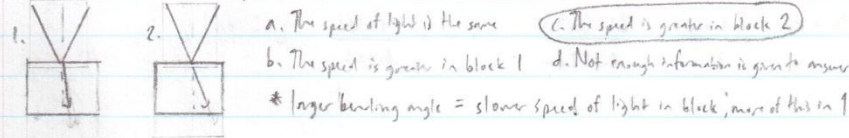 1. 2. a. The speed of light is the same (c. The speed is greater in block 2)
b. The speed is greater in block 1 d. Not enough information is given to answer
* larger bending angle = slower speed of light in block, more of this in 1